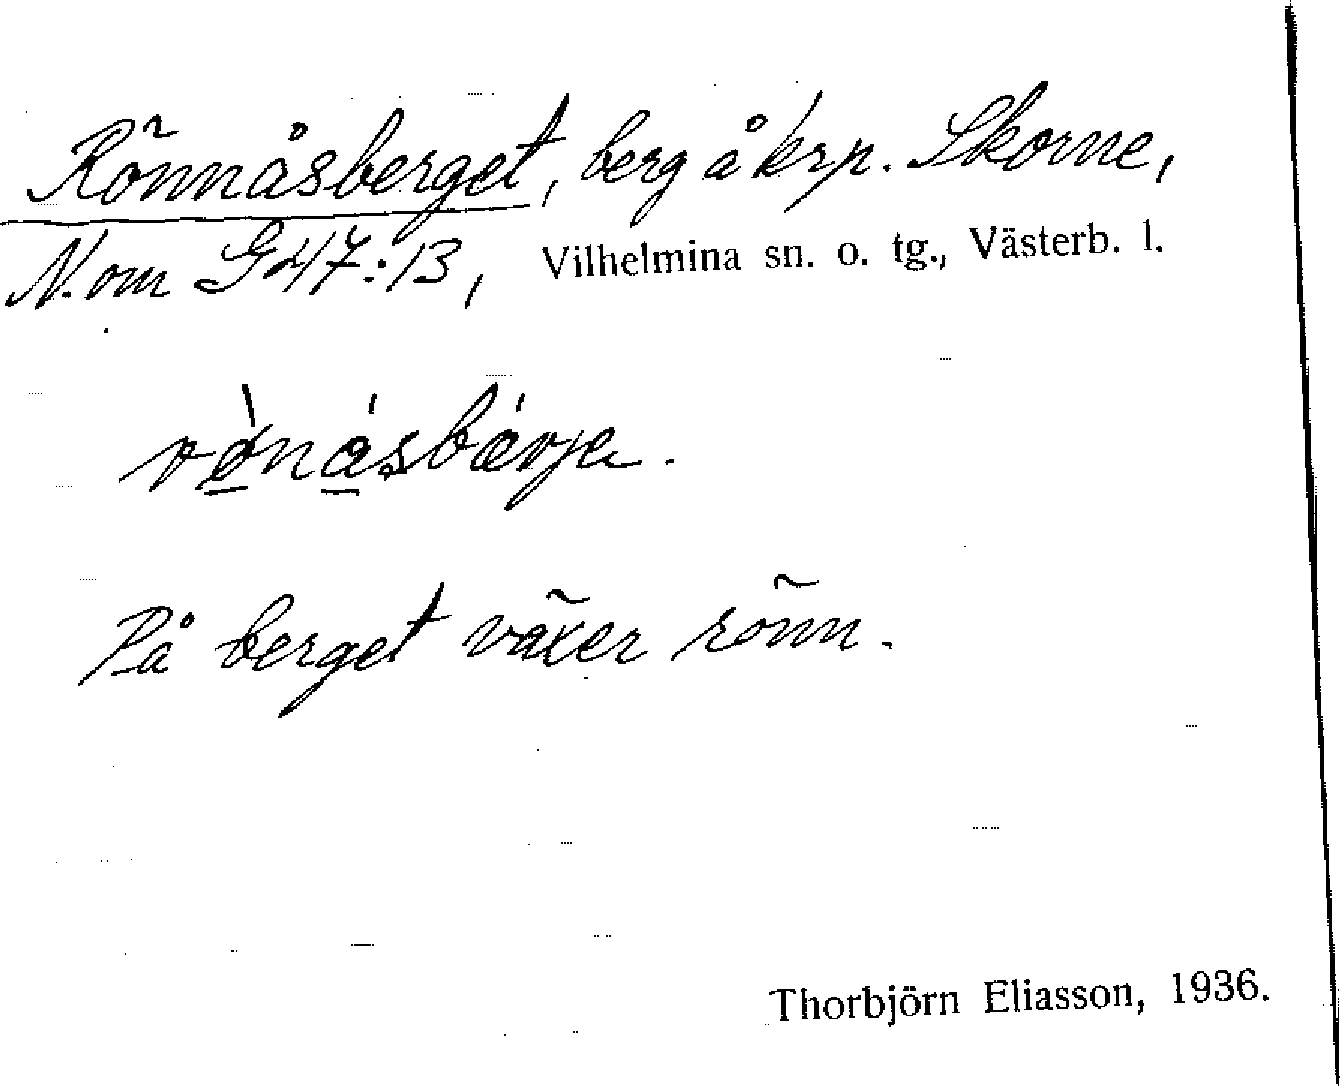 Rönnåsberget, berg å krp. Skorne,
N. om G 47:13, Vilhelmina sn. o. tg., Västerb. l.
På berget växer rönn.
Thorbjörn Eliasson, 1936.